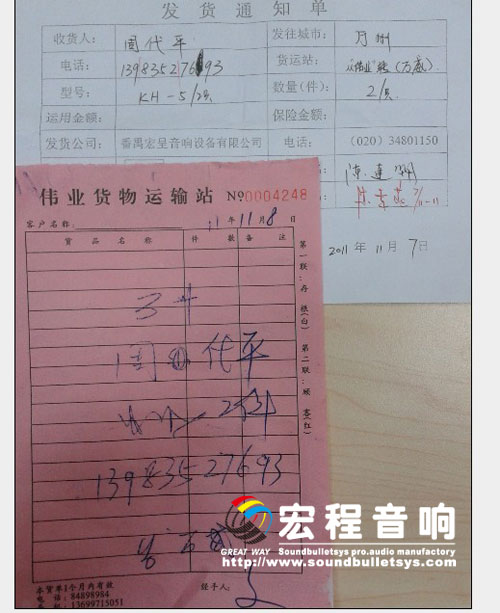 发货通知单
收货人： 周代平 发往城市： 万州
电话： 13983527693 货运站： 伟业 (万盛)
型号： KH-5/2只 数量(件)： 2/只
运用金额： 保险金额：
发货公司： 番禺宏呈音响设备有限公司 电话： (020) 34801150
2011年 11月 7日
伟业货物运输站 No 0004248
客户名称： 11年11月8日
货品名称 件数 备注
周代平
2件
13983527693
第一联:存根(白) 第二联:顾客(红)
本货单1个月内有效
电话: 84898984
13699715051
经手人:
宏程音响
GREAT WAY Soundbulletsys pro.audio manufactory
http://www.soundbulletsys.com